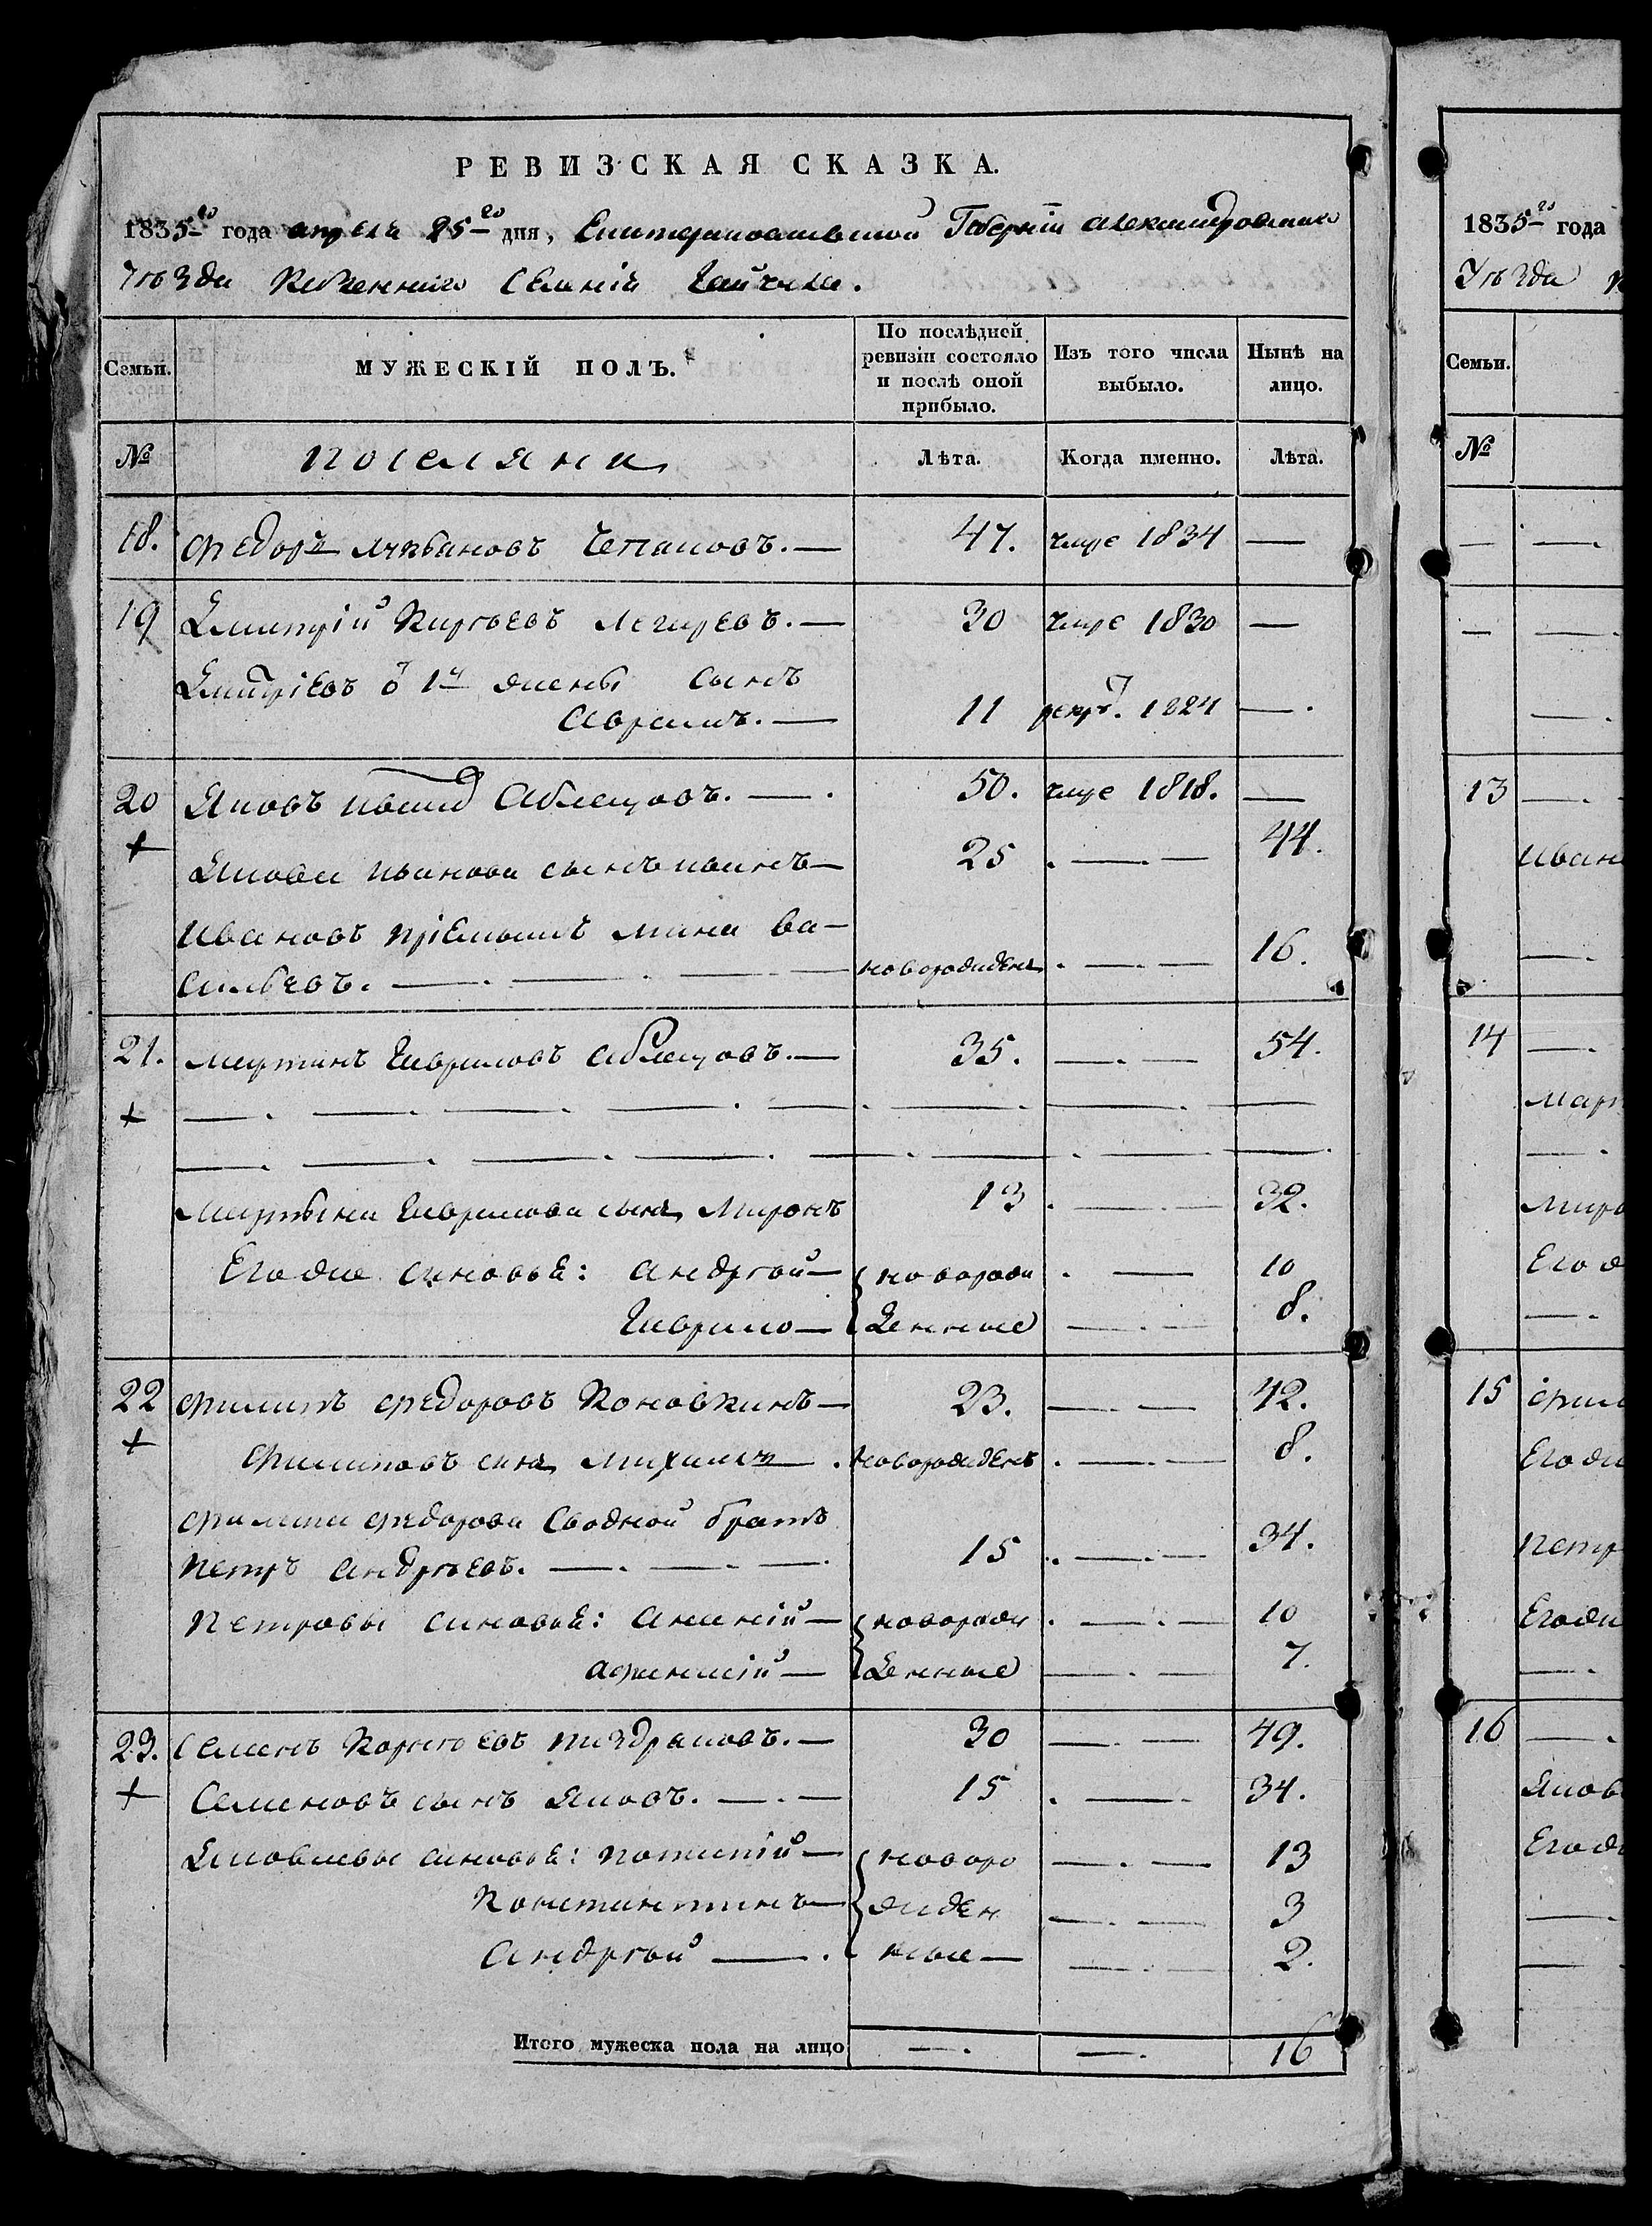 РЕВИЗСКАЯ СКАЗКА.
1835го года апреля 25го дня, Екатеринославской Губерніи Александровскаго
Уѣзда Казеннаго Селенія Гайчула.
Семьи.
МУЖЕСКІЙ ПОЛЪ.
По послѣдней ревизіи состояло и послѣ оной прибыло.
Изъ того числа выбыло.
Нынѣ на лицо.
№ поселяне Лѣта. Когда имепно. Лѣта.
18. Федоръ Чепаковъ. — 47. умре 1834 —
19 Дмитрій Киреевъ — 30 умре 1830 —
Дмитріевъ ѿ 1й жены сынъ
Аврамъ. — 11 рекр. 1824 — .
20 Яковъ Ивановъ Аблецовъ. — . 50. умре 1818. —
+ Якова Иванова сынъ Иванъ — 25 . — . — 44.
Ивановъ пріемышъ Мина Ва-
сильевъ. — . — . — — новорожденъ . — . — 16.
21. Мартинъ Гавриловъ Аблецовъ. — 35. — . — 54.
+ — . — . — . — . — . — . — . —
— . — . — . — . — . — . — . — .
Мартына Гаврилова сынъ Миронъ 13 . — . — 32.
Его же синовья: Андрей — новорож . — 10
Гаврило — денные — . — 8.
22 Филипъ Федоровъ Коновкинъ — 23. — . — 42.
+ Филиповъ сынъ Михаилъ — . новорожденъ . — . — 8.
Филипа Федорова Сводной братъ
Петръ Андреевъ. — . — . — . 15 . — . — 34.
Петровы синовья: Ананій — новорож . — . — 10
Афанасій — денные — . — 7.
23. Семенъ Корнеевъ — 30 — . — 49.
+ Семеновъ сынъ Яковъ. — . — 15 . — . 34.
Яковлевы синовья: — новоро — . — 13
Константинъ — жден — . — 3
Андрей — . ные — — . — 2.
Итого мужеска пола на лицо — . — . 16
1835го года
Уѣзда
Семьи.
№
— — .
— — .
— .
13 — .
Иван
— .
14 — .
Март
— .
Миро
Его ж
— .
15 Фили
Его же
Петр
Его же
— .
16 — .
Яков
Его же
— .
—